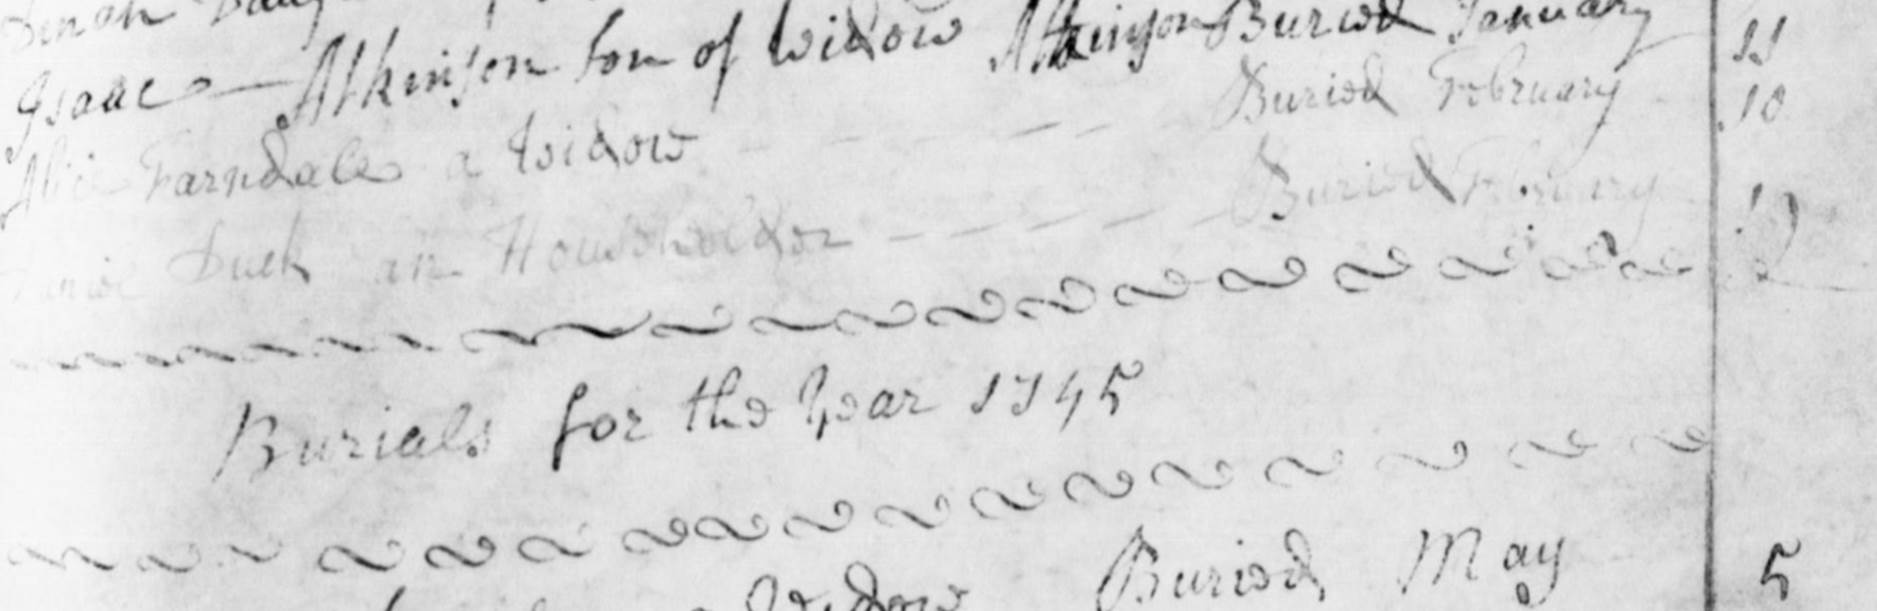 Isaac Atkinson Son of Widow Atkinson Buried January 11
Alice Farndale a Widow Buried February 10
Duck an Householder Buried February
Burials for the Year 1745
Widow Buried May 5